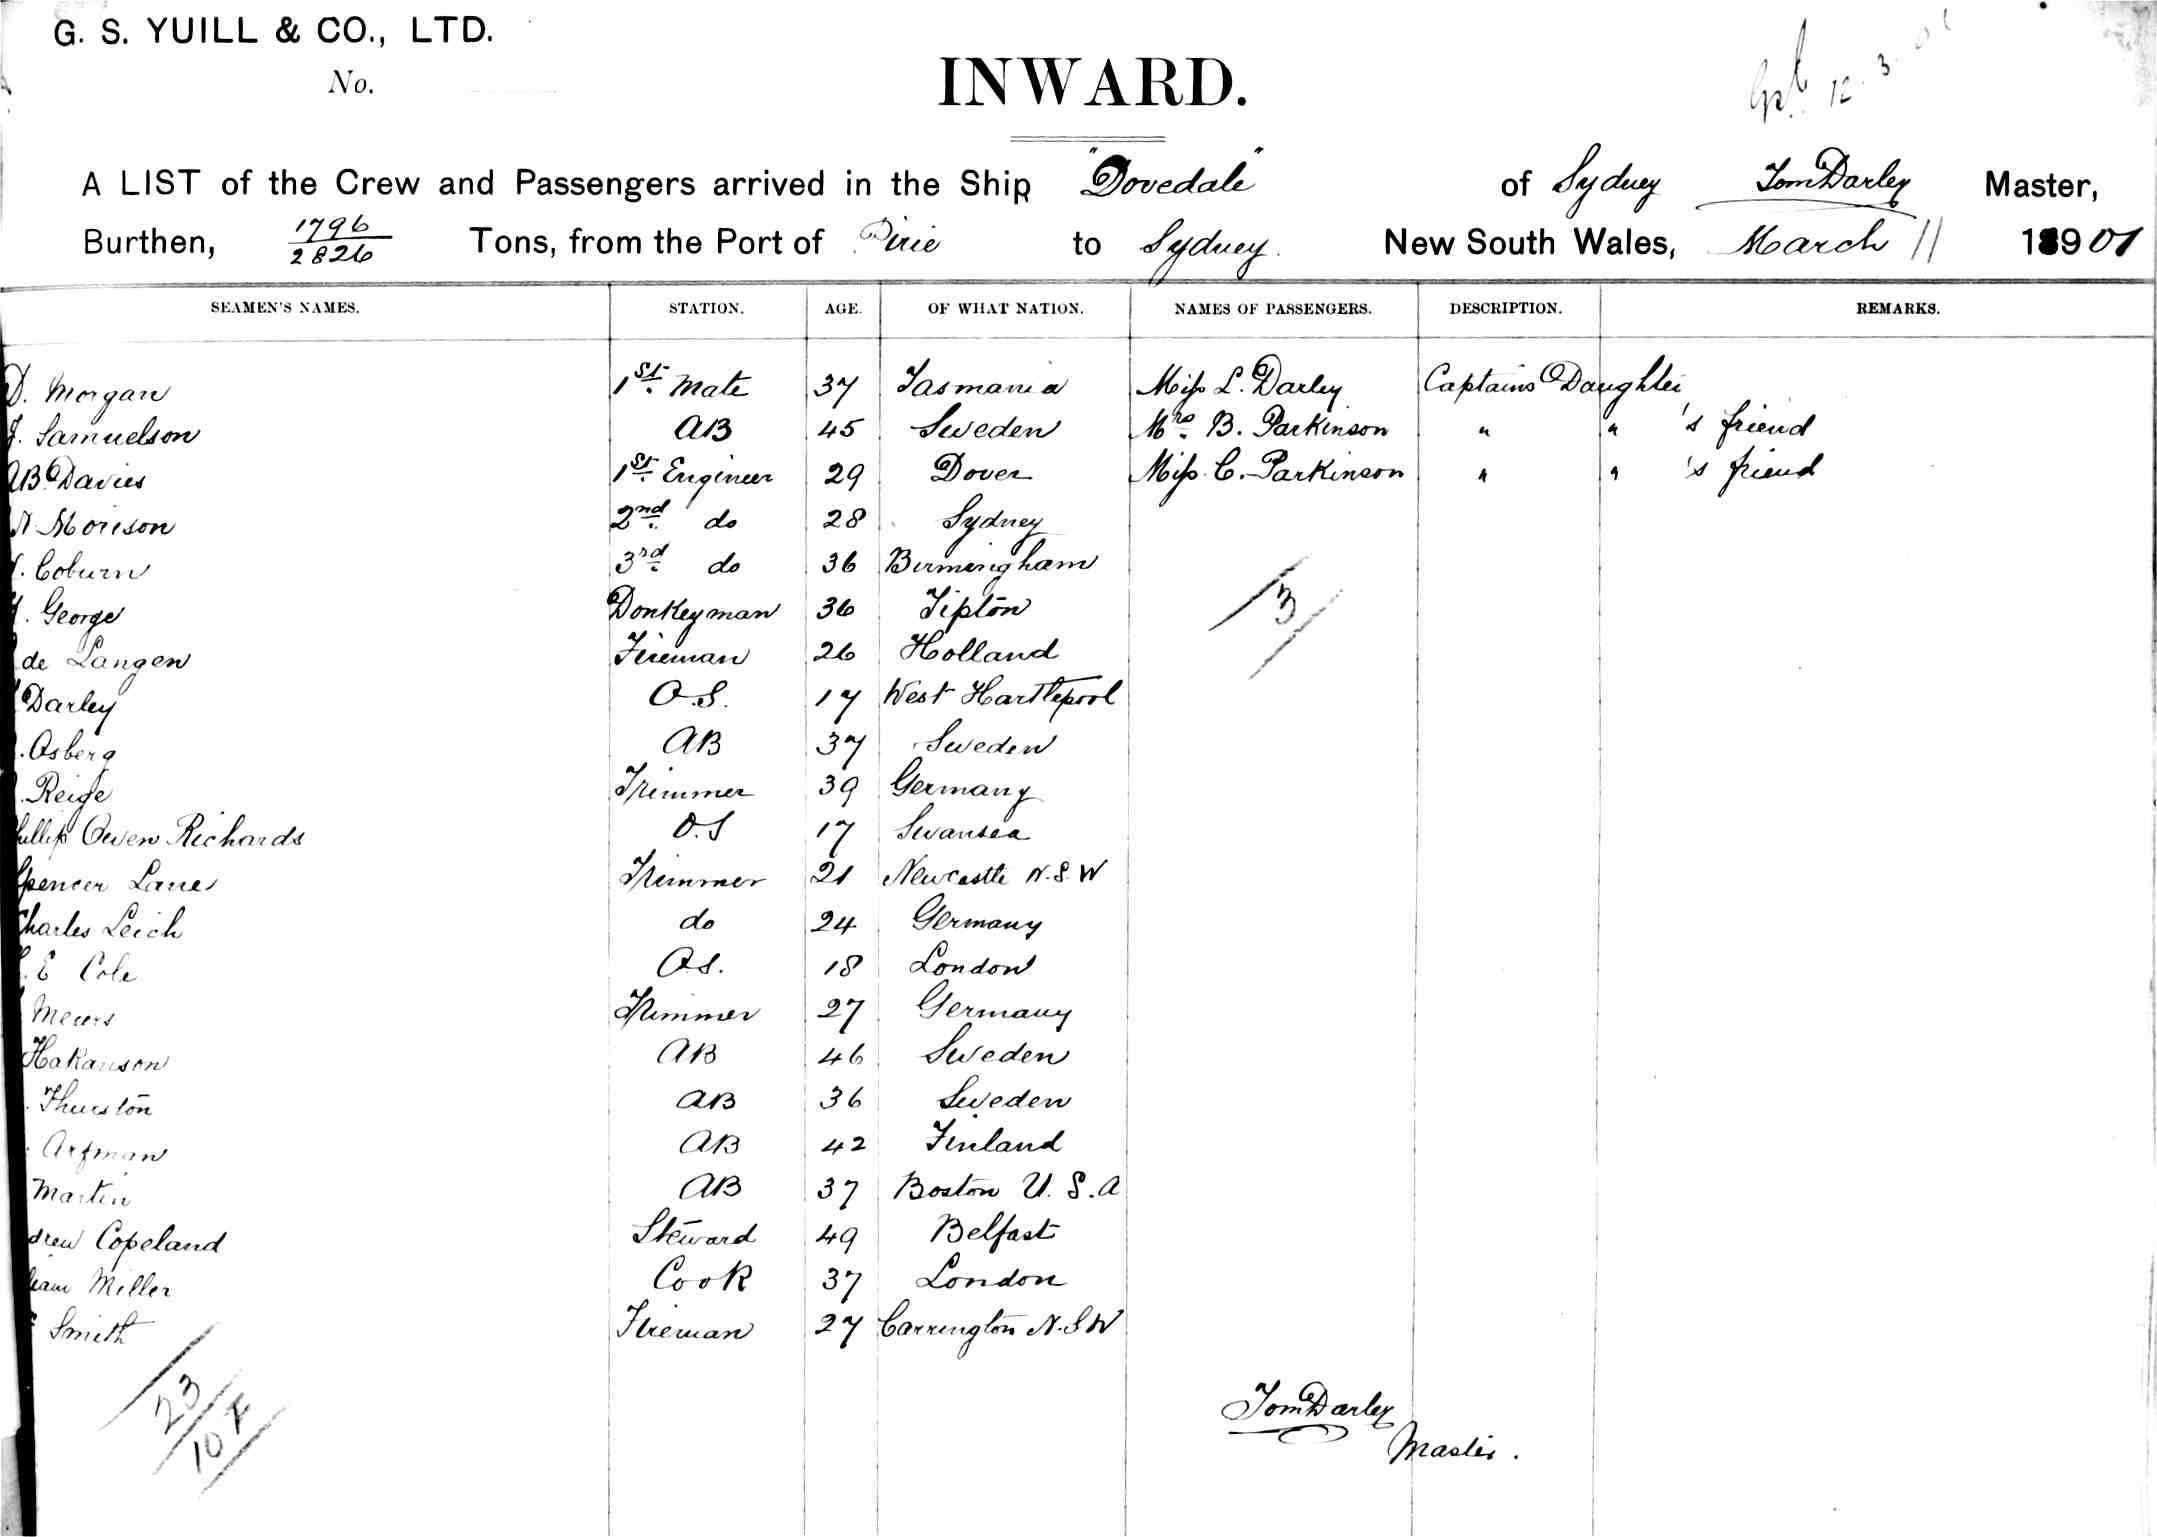 G. S. YUILL & CO., LTD.
No.
12. 3. 01
INWARD.
A LIST of the Crew and Passengers arrived in the Ship "Dovedale" of Sydney Tom Darley Master,
Burthen, 1796 / 2826 Tons, from the Port of Pirie to Sydney. New South Wales, March 11 18901
SEAMEN'S NAMES. STATION. AGE. OF WHAT NATION. NAMES OF PASSENGERS. DESCRIPTION. REMARKS.
D. Morgan 1st. Mate 37 Tasmania Miss L. Darley Captains Daughter
J. Samuelson AB 45 Sweden Mrs. B. Parkinson " " 's friend
AB Davies 1st. Engineer 29 Dover Miss C. Parkinson " " 's friend
Morison 2nd. do 28 Sydney
. Coburn 3rd. do 36 Birmingham
. George Donkeyman 36 Tipton
de Langen Fireman 26 Holland
Darley O.S. 17 West Hartlepool
. Osberg AB 37 Sweden
. Reige Trimmer 39 Germany
hillip Owen Richards O.S 17 Swansea
Spencer Lane Trimmer 21 Newcastle N.S.W
Charles Leich do 24 Germany
. E Cole O.S. 18 London
Meiers Trimmer 27 Germany
Hakanson AB 46 Sweden
. Thurston AB 36 Sweden
Arfman AB 42 Finland
Martin AB 37 Boston U.S.A
drew Copeland Steward 49 Belfast
liam Miller Cook 37 London
Smith Fireman 27 Carrington N.S.W
3
23
10 F
Tom Darley
Master.